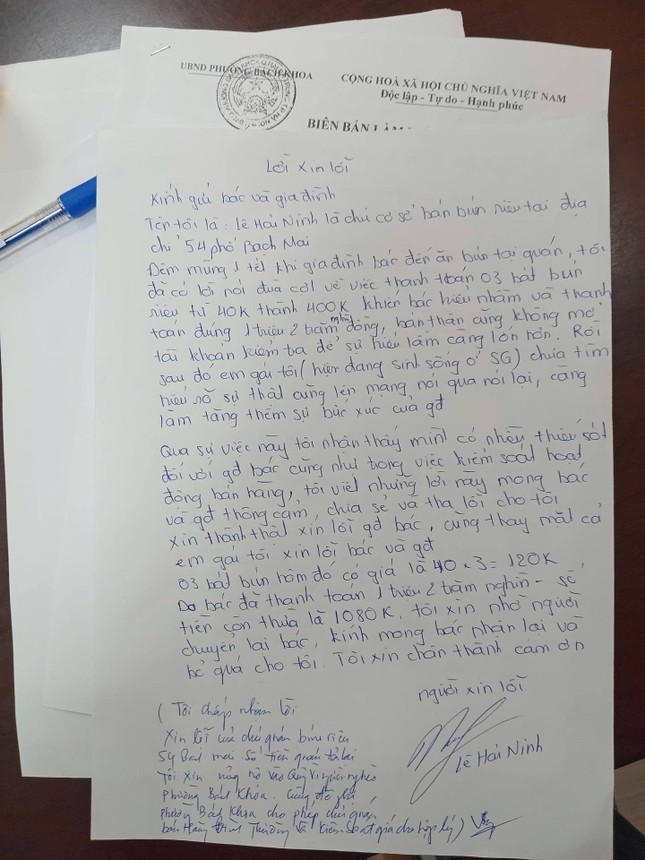 UBND PHƯỜNG BÁCH KHOA
CỘNG HOÀ XÃ HỘI CHỦ NGHĨA VIỆT NAM
Độc lập - Tự do - Hạnh phúc
BIÊN BẢN LÀM
Lời xin lỗi
Kính gửi bác và gia đình
Tên tôi là : Lê Hải Ninh là chủ cơ sở bán bún riêu tại địa
chỉ 54 phố Bạch Mai
Đêm mùng 1 tết khi gia đình bác đến ăn bún tại quán, tôi
đã có lời nói đùa cợt về việc thanh toán 03 bát bún
riêu từ 40K thành 400K khiến bác hiểu nhầm và thanh
toán đúng 1 triệu 2 trăm nghìn đồng, bản thân cũng không mở
tài khoản kiểm tra để sự hiểu lầm càng lớn hơn. Rồi
sau đó em gái tôi (hiện đang sinh sống ở SG) chưa tìm
hiểu rõ sự thật cũng lên mạng nói qua nói lại, càng
làm tăng thêm sự bức xúc của gđ
Qua sự việc này tôi nhận thấy mình có nhiều thiếu sót
đối với gđ bác cũng như trong việc kiểm soát hoạt
động bán hàng, tôi viết những lời này mong bác
và gđ thông cảm, chia sẻ và tha lỗi cho tôi
Xin thành thật xin lỗi gđ bác, cũng thay mặt cả
em gái tôi xin lỗi bác và gđ
03 bát bún hôm đó có giá là 40 x 3 = 120K
Do bác đã thanh toán 1 triệu 2 trăm nghìn - số
tiền còn thừa là 1080K, tôi xin nhờ người
chuyển lại bác, kính mong bác nhận lại và
bỏ qua cho tôi. Tôi xin chân thành cảm ơn
người xin lỗi
Lê Hải Ninh
( Tôi chấp nhận lời
Xin lỗi của chủ quán bún riêu
54 Bạch mai Số tiền quán trả lại
Tôi xin ủng hộ vào Quỹ Vì người nghèo
phường Bách Khoa. Cũng đề nghị
phường Bách Khoa cho phép chủ quán
bán hàng bình Thường Và kiểm soát giá cho hợp lý )